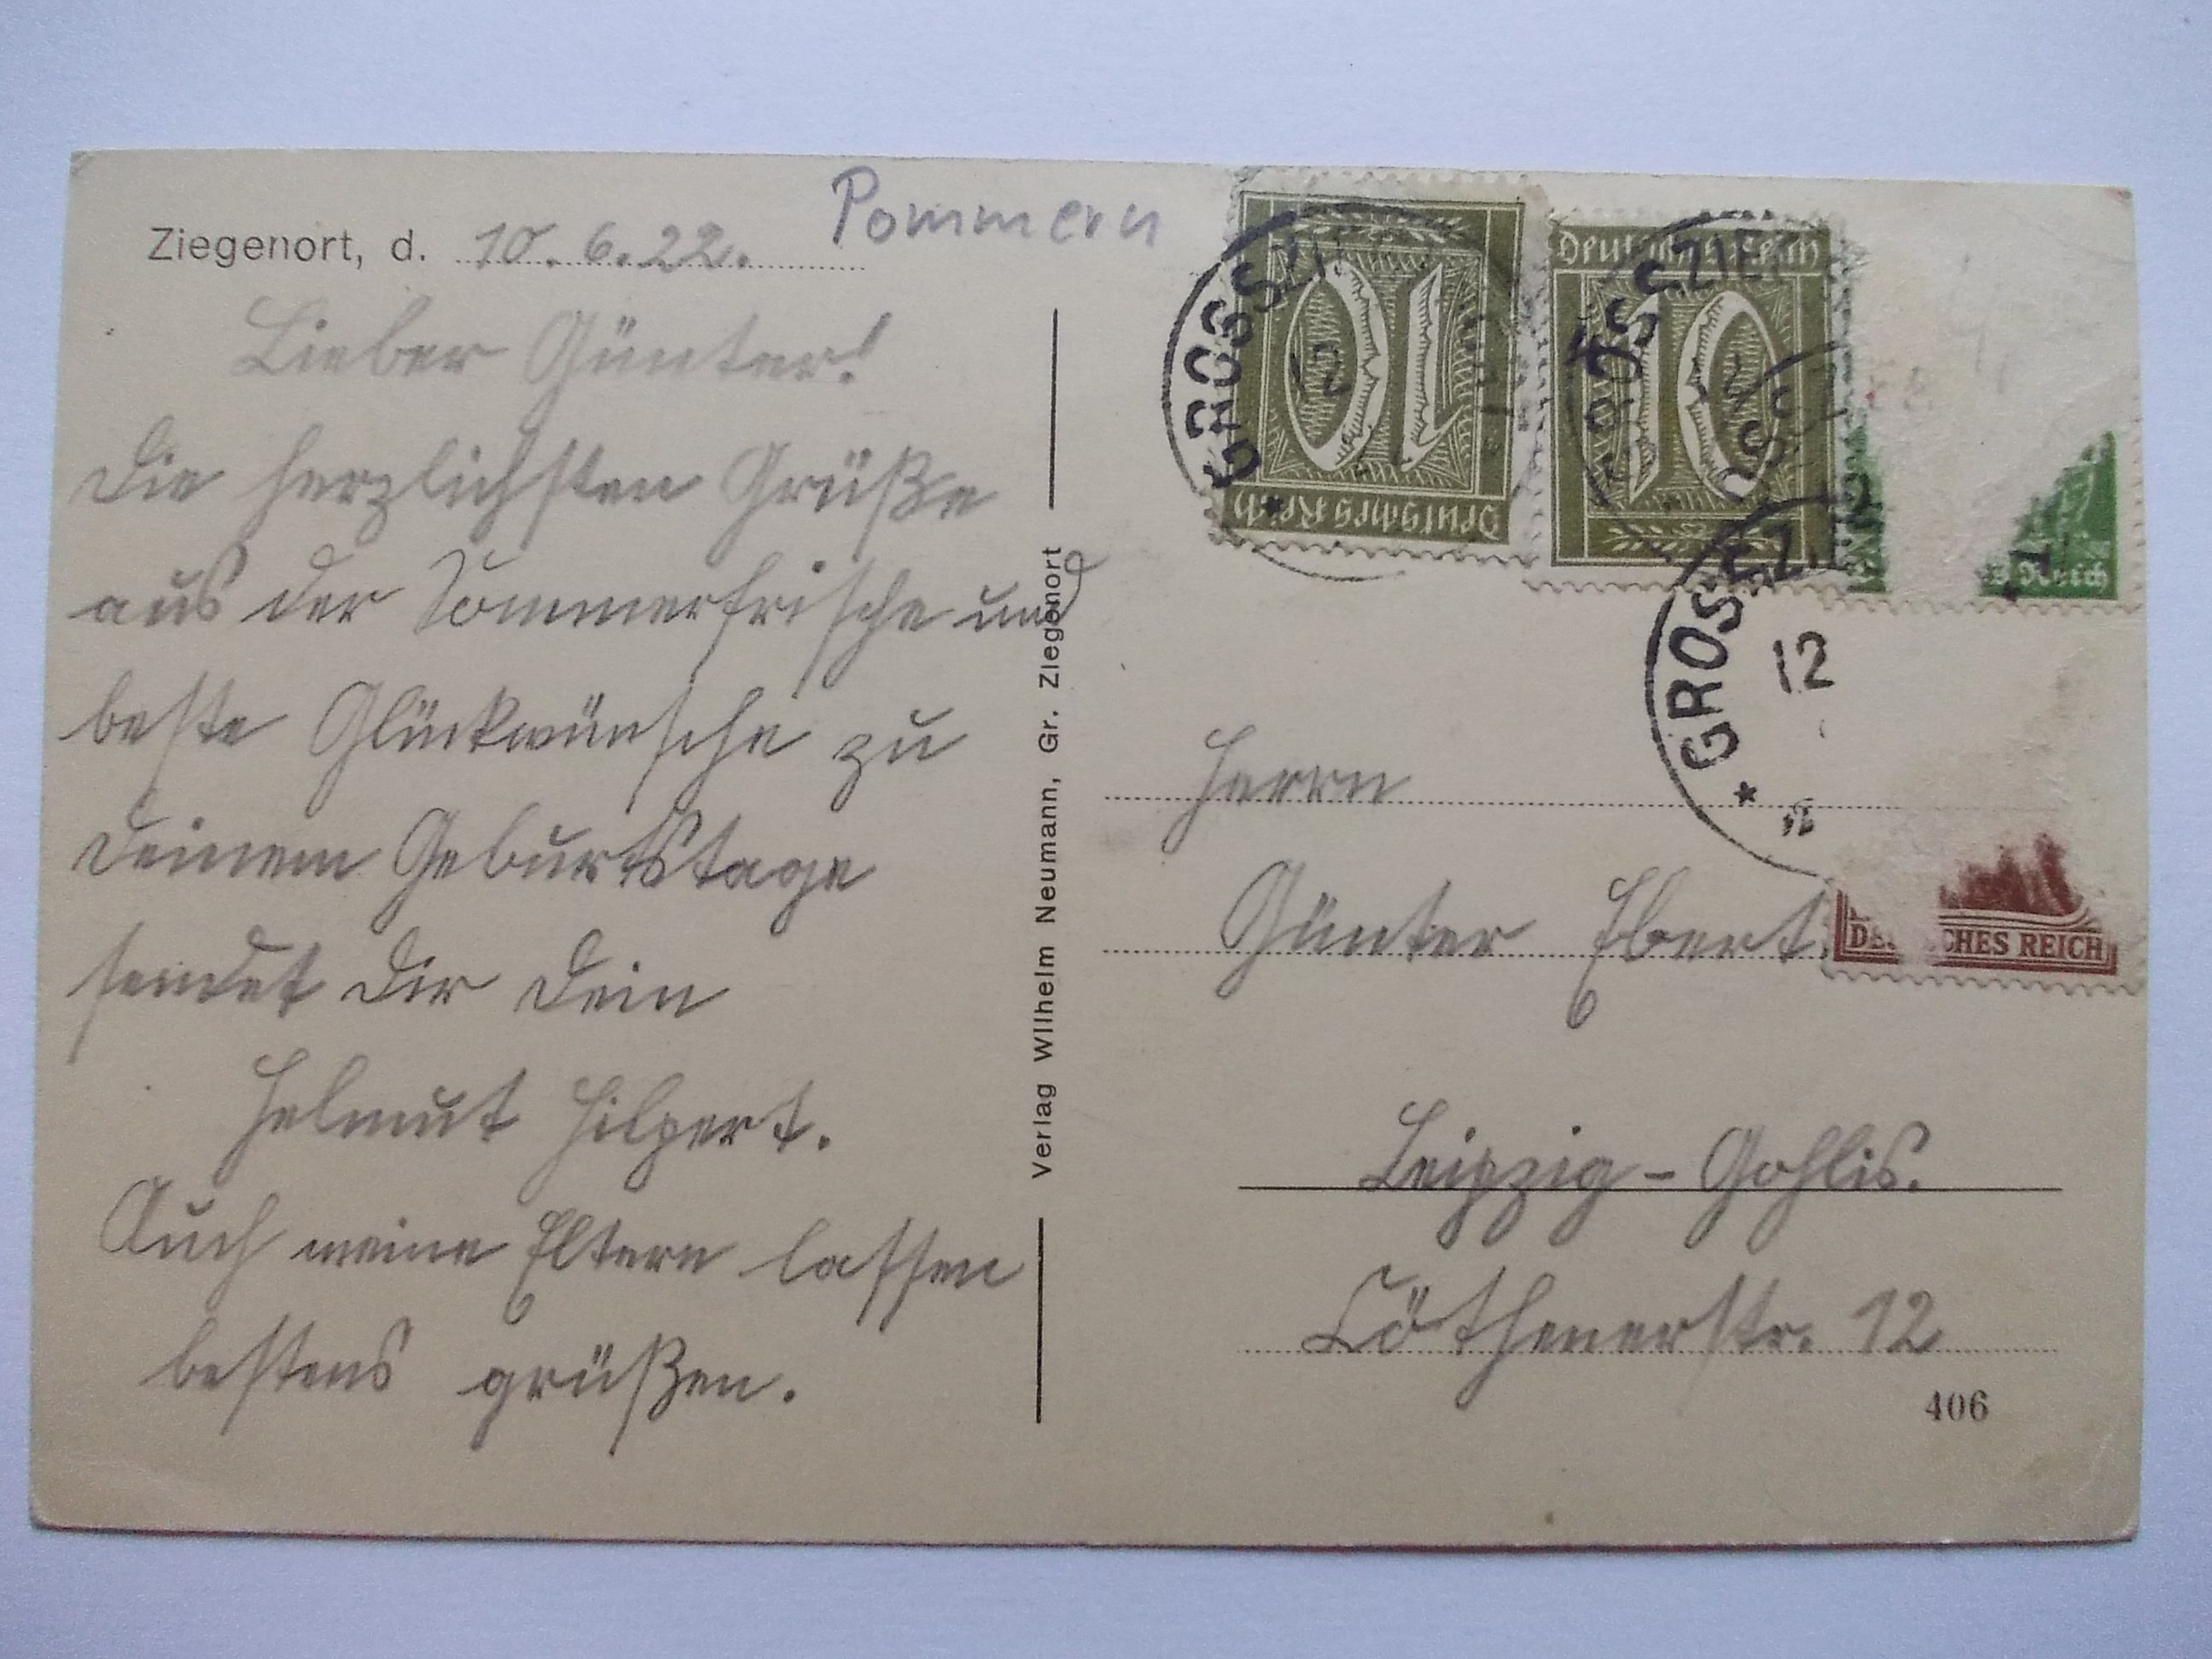 Ziegenort, d. 10.6.22.
Pommern
Lieber Günter!
Die herzlichsten Grüße
aus der Sommerfrische und
beste Glückwünsche zu
Deinem Geburtstage
sendet Dir Dein
Helmut Hilpert.
Auch meine Eltern lassen
bestens grüßen.
Verlag Wilhelm Neumann, Gr. Ziegenort
10
Deutsches Reich
Deutsches Reich
10
Reich
GROSS ZI
12
GROSS ZIE
12
GROSS ZI
12
DE CHES REICH
Herrn
Günter Ebert.
Leipzig - Gohlis.
Cöthenerstr. 12
406